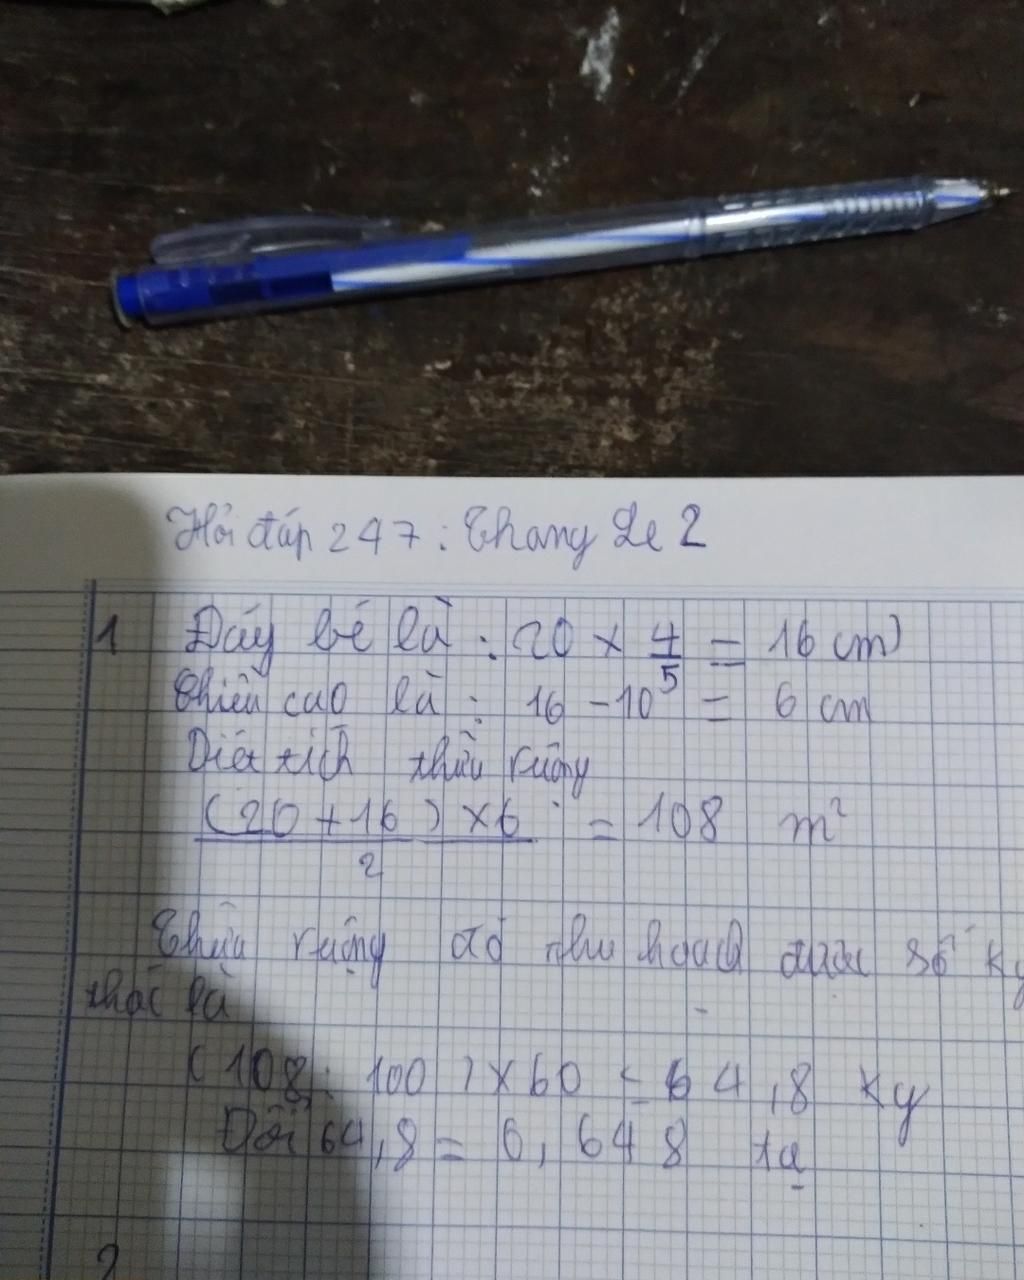 Hỏi đáp 247: Thang Le 2
1 Đáy bé là : 20 × 4/5 = 16 cm)
Chiều cao là : 16 - 10 = 6 cm
Diện tích thửa ruộng
(20 + 16) × 6 / 2 = 108 m²
Thửa ruộng đó thu hoạch được số kg
thóc là
(108 : 100) × 60 = 64,8 kg
Đổi 64,8 = 0,648 tạ
2